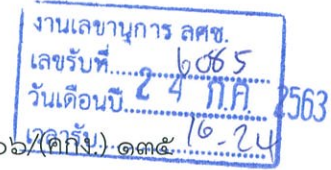 งานเลขานุการ ลศช.
เลขรับที่..... ๖065
วันเดือนปี 24 ก.ค. 2563
เวลารับ 16-24
๐๖/(คกง.) ๑๓๕